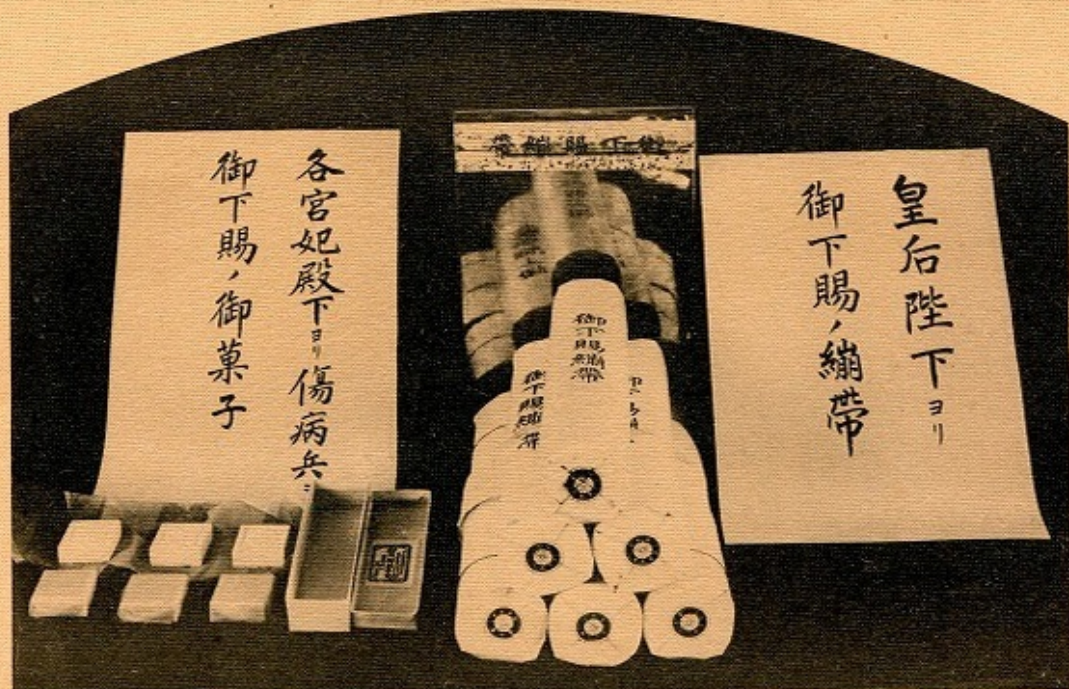 皇后陛下ヨリ
御下賜ノ繃帯
御下賜繃帯
御下賜繃帯
御下賜繃帯
各宮妃殿下ヨリ傷病兵ニ
御下賜ノ御菓子